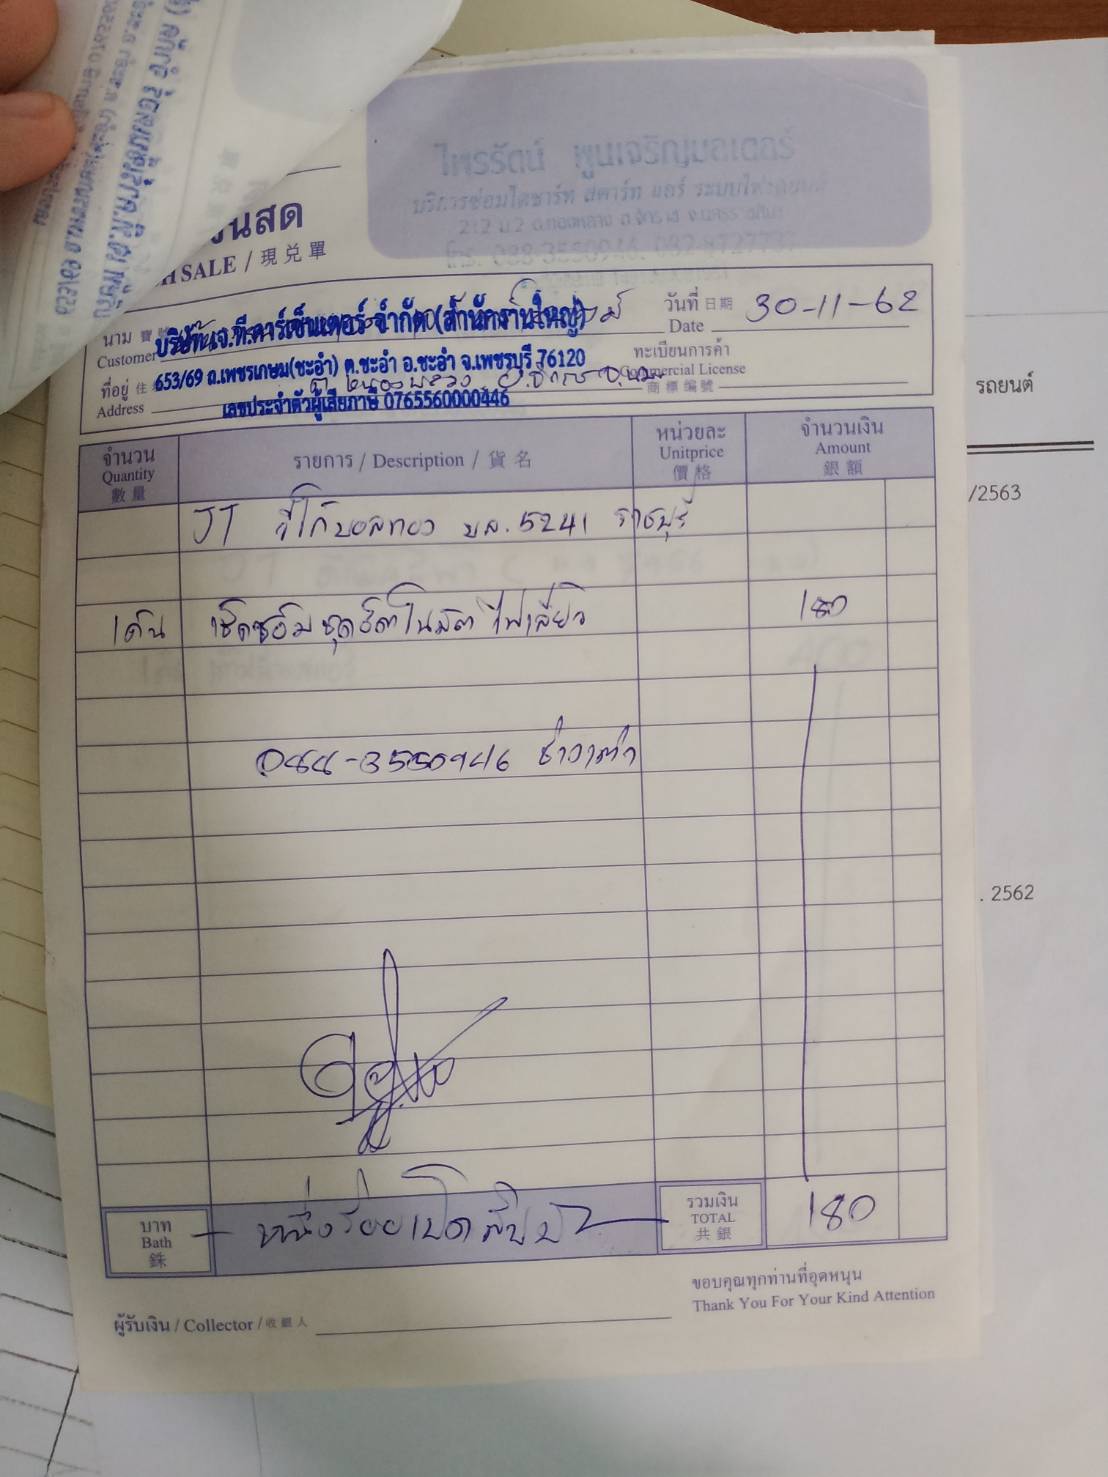 นสด
SALE / 現兑單
ไพรรัตน์ พูนเจริญมอเตอร์
บริการซ่อมไดชาร์ท สตาร์ท แอร์ ระบบไฟ
212 ม.2
โทร. 088-3550946,
นาม
Customer
บริษัท เจ.ที.คาร์เซ็นเตอร์ จำกัด (สำนักงานใหญ่)
วันที่ 日期
Date
30-11-62
653/69 ถ.เพชรเกษม(ชะอำ) ต.ชะอำ อ.ชะอำ จ.เพชรบุรี 76120
ทะเบียนการค้า
Commercial License
商標編號
ที่อยู่ 住
Address
เลขประจำตัวผู้เสียภาษี 0765560000446
จำนวน
Quantity
數量
รายการ / Description / 貨名
หน่วยละ
Unitprice
價格
จำนวนเงิน
Amount
銀額
JT วีโก้บอลทอง บล.5241 ราชบุรี
1คัน เช็คซ่อม ชุดอัตโนมัติ ไฟเลี้ยว 180
088-3550946
บาท
Bath
銖
หนึ่งร้อยแปดสิบบ
รวมเงิน
TOTAL
共銀
180
ขอบคุณทุกท่านที่อุดหนุน
Thank You For Your Kind Attention
ผู้รับเงิน / Collector / 收銀人
รถยนต์
/2563
. 2562